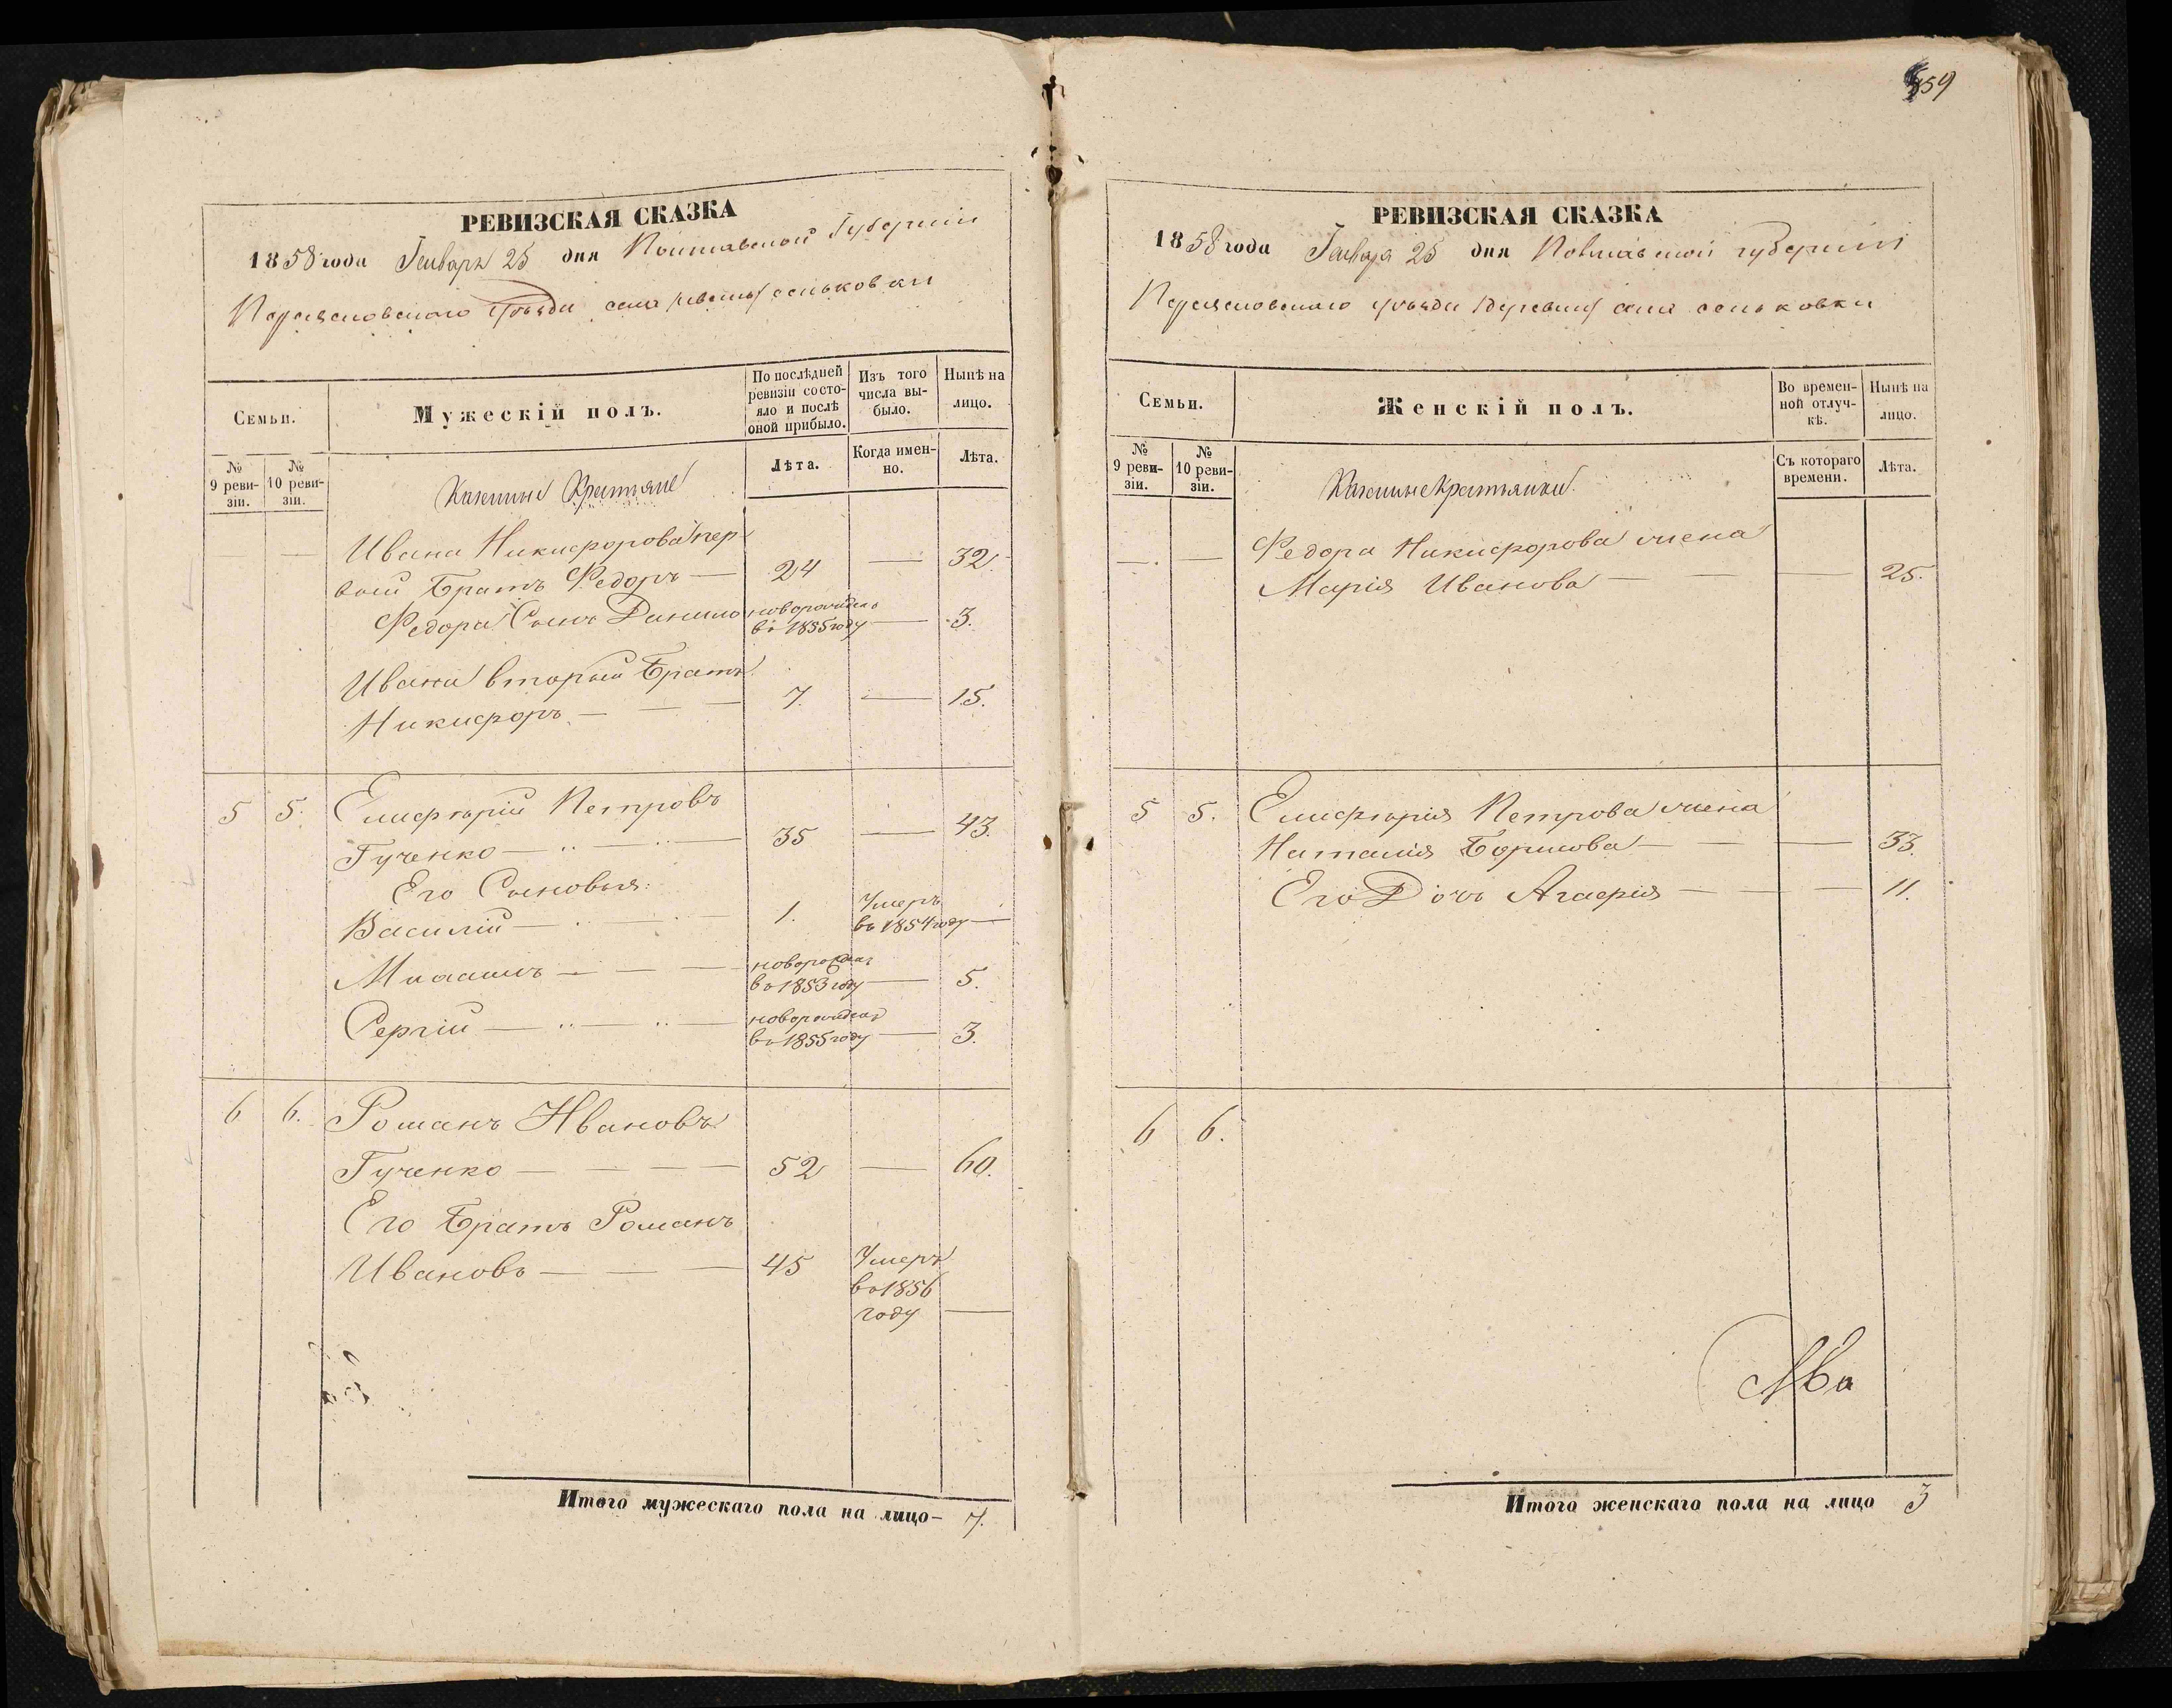 РЕВИЗСКАЯ СКАЗКА
1858 года Генваря 25 дня Полтавской Губерніи
Переяславского уѣзда села Сеньковки
Семьи.
Мужескій полъ.
По послѣдней ревизіи состояло и послѣ оной прибыло.
Изъ того числа выбыло.
Нынѣ на лицо.
№ 9 ревизіи.
№ 10 ревизіи.
Казенные Крестьяне
Лѣта.
Когда именно.
Лѣта.
Ивана Никифорова пер
вой Братъ Федоръ — 24 — 32.
Федора Сынъ Данило новорожден въ 1855 году — 3.
Ивана вторый Братъ
Никифоръ — — — 7. — 15.
5 5. Елифтерій Петровъ
Гученко — 35 — 43.
Его Сыновья:
Василій — 1. Умеръ въ 1854 году —
— — — новорожден въ 1853 году — 5.
Сергій — новорожден въ 1855 году — 3.
6 6. Романъ Ивановъ
Гученко — — — — 52 — 60.
Его Братъ Романъ
Ивановъ — — — 45 Умеръ
въ 1856
году —
Итого мужескаго пола на лицо — 7.
59
РЕВИЗСКАЯ СКАЗКА
1858 года Генваря 25 дня Полтавской губерніи
Переяславского уѣзда деревни села Сеньковки
Семьи.
Женскій полъ.
Во временной отлучкѣ.
Нынѣ на лицо.
№ 9 ревизіи.
№ 10 ревизіи.
Казенные Крестьянки.
Съ котораго времени.
Лѣта.
— — Федора Никифорова жена
Марія Иванова — — — 25.
5 5. Елифтерія Петрова жена
Наталія Борисова — — — 33.
Его Дочь Агафія — — — 11.
6 6.
Итого женскаго пола на лицо 3